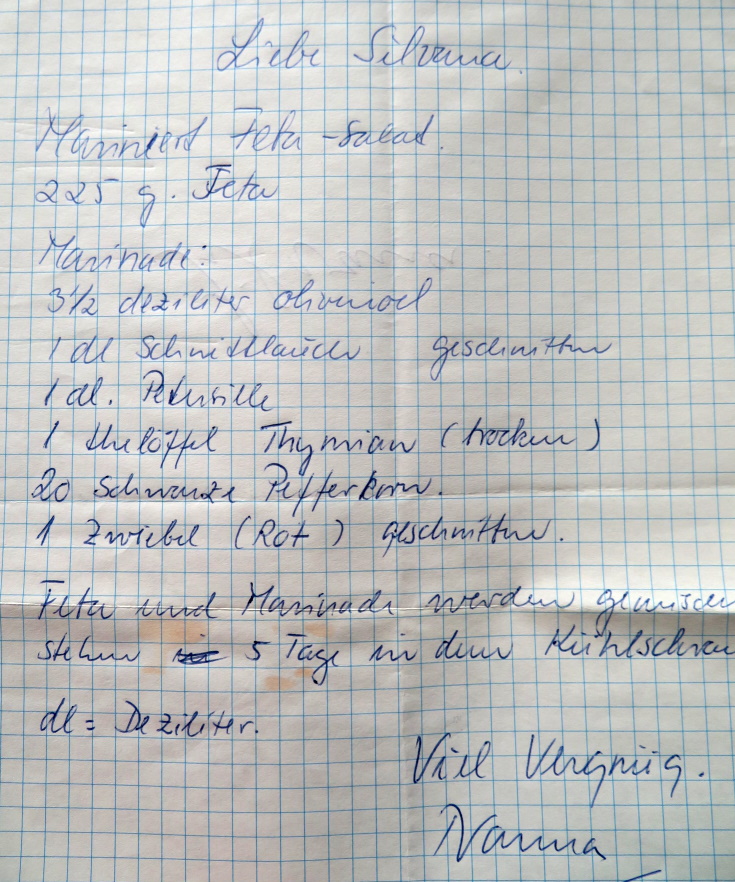 Liebe Silvana.
Mariniert Feta-Salat.
225 g. Feta
Marinade:
3 1/2 deziliter olivenoel
1 dl Schnittlauch geschnitten
1 dl. Petersille
1 theelöffel Thymian (trocken)
20 Schwarze Pefferkorn.
1 Zwiebel (Rot) geschnitten.
Feta und Marinade werden gemischt
stehen 5 Tage in dem Kühlschran
dl = Deziliter.
Viel Vergnüg.
Nanna